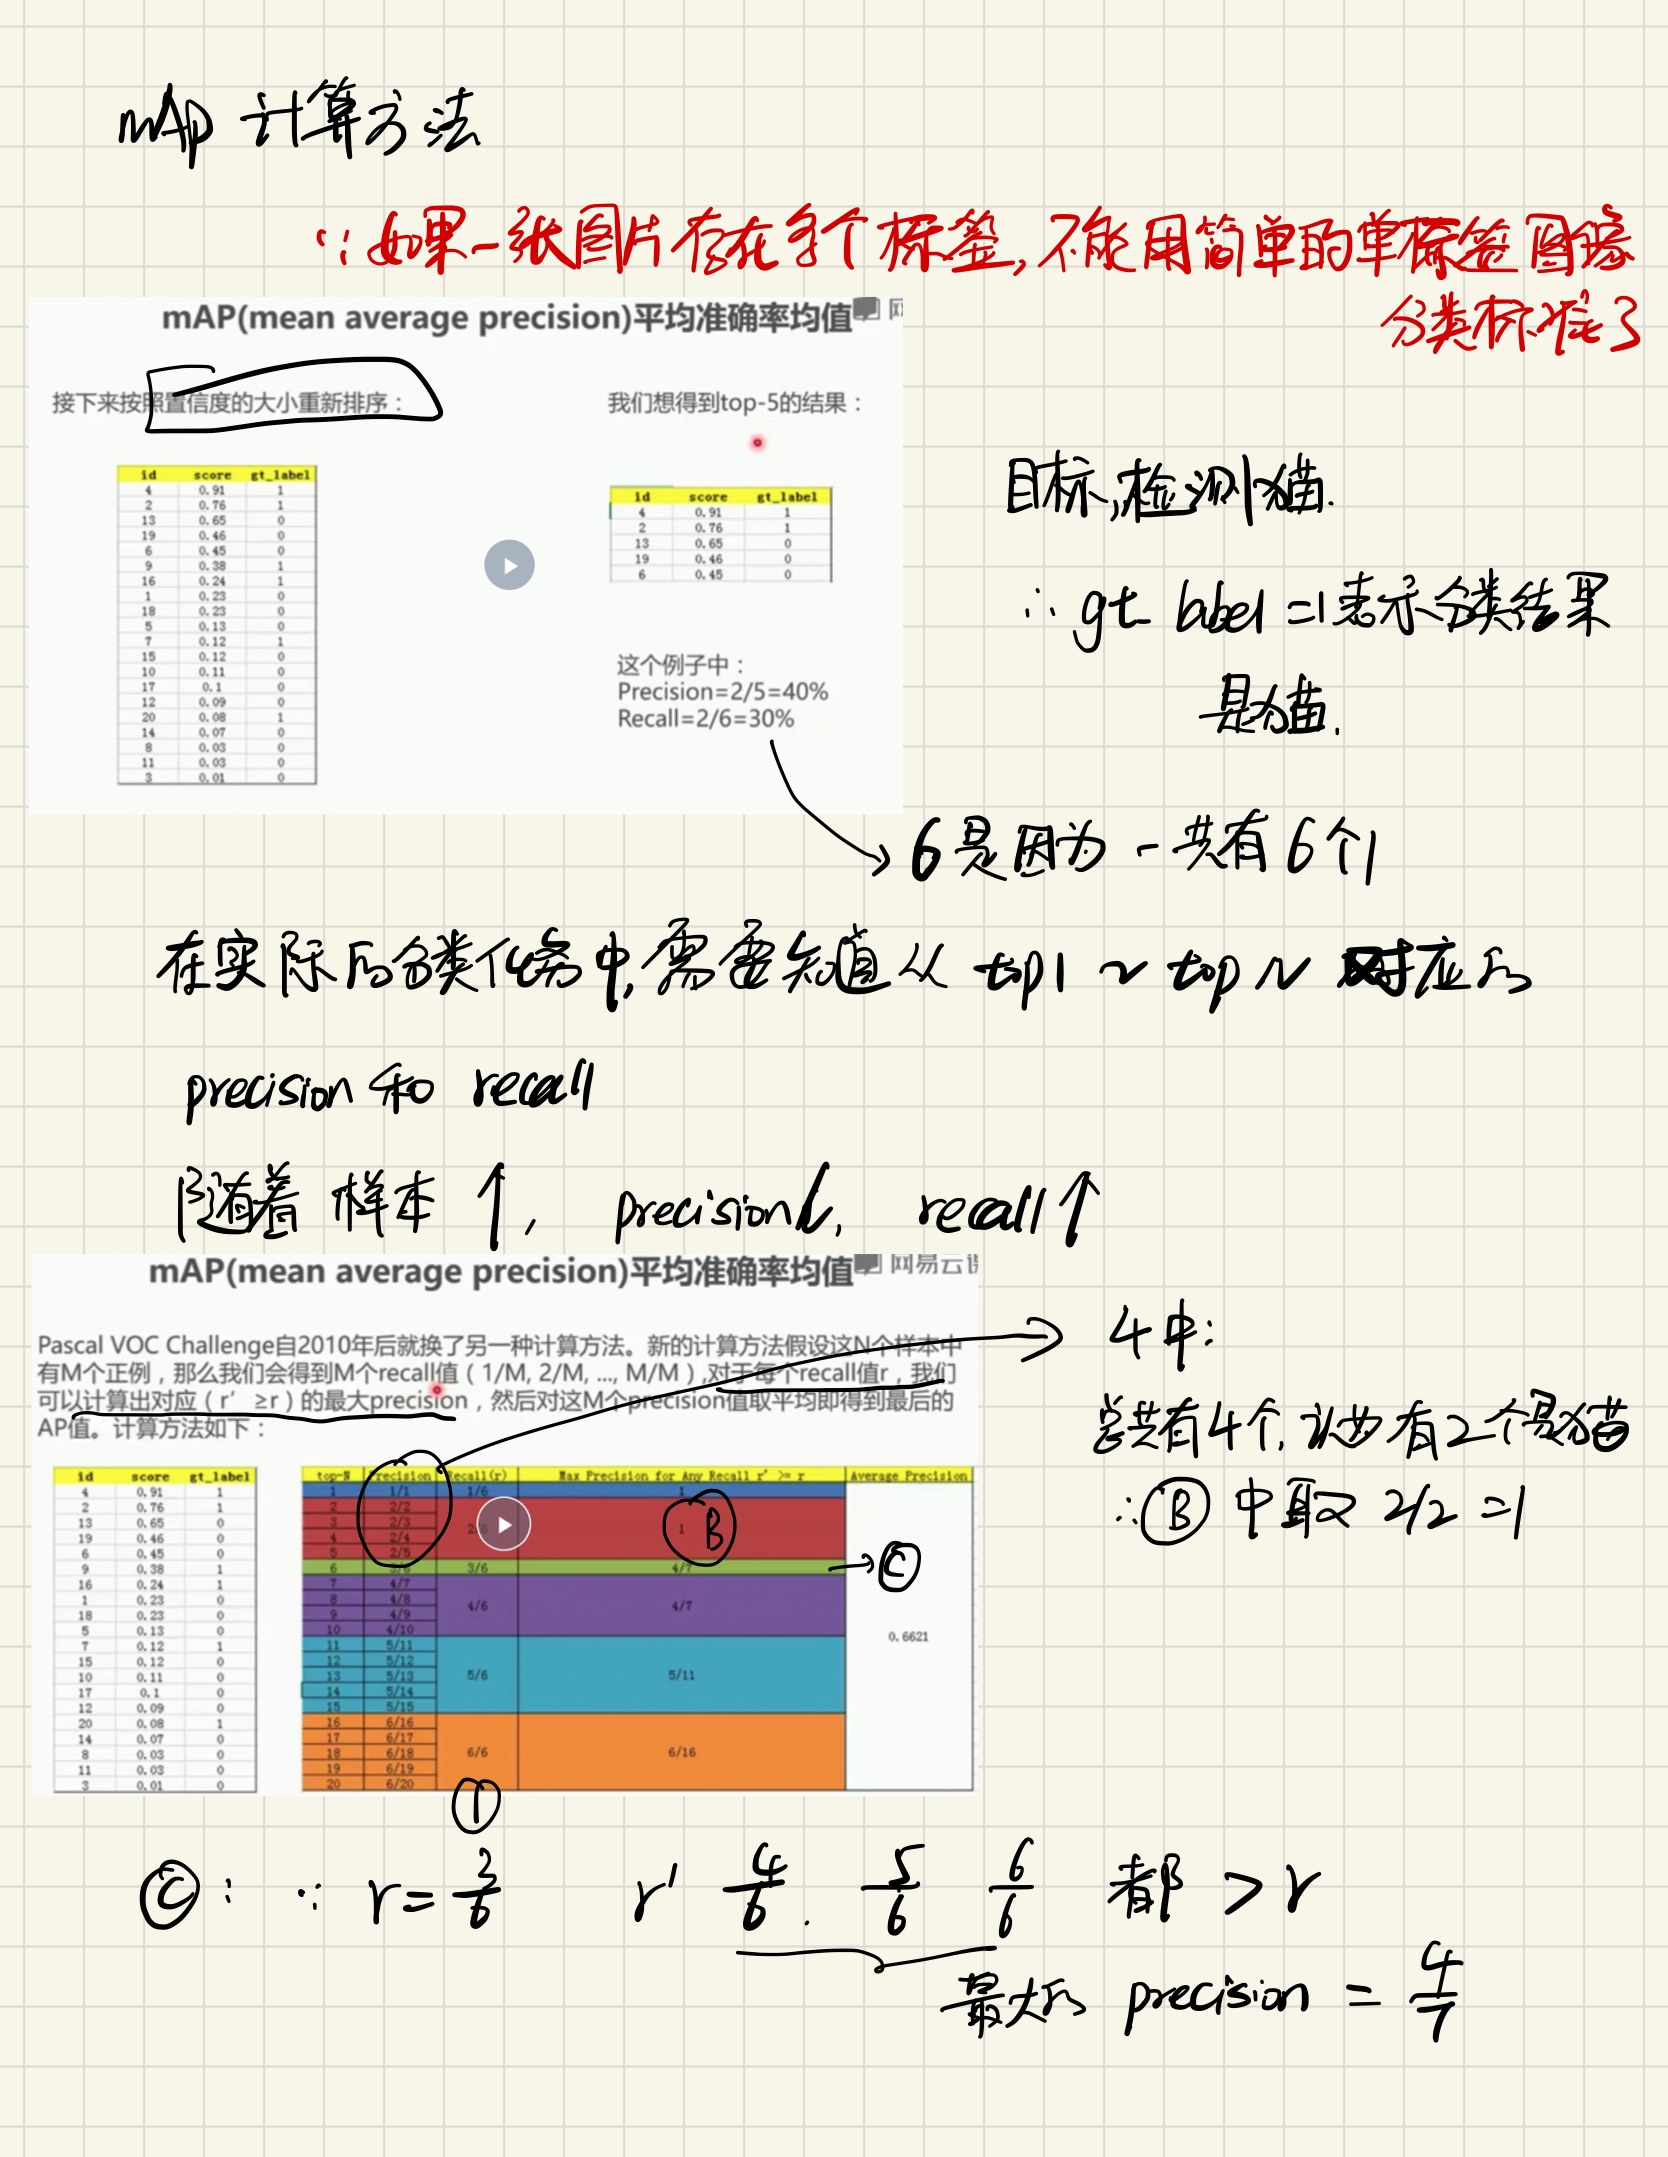 mAP 计算方法
∵如果一张图片存在多个标签,不能用简单的单标签图像
分类标准了
mAP(mean average precision)平均准确率均值
接下来按照置信度的大小重新排序：
我们想得到top-5的结果：
id score gt_label
4 0.91 1
2 0.76 1
13 0.65 0
19 0.46 0
6 0.45 0
9 0.38 1
16 0.24 1
1 0.23 0
18 0.23 0
5 0.13 0
7 0.12 1
15 0.12 0
10 0.11 0
17 0.1 0
12 0.09 0
20 0.08 1
14 0.07 0
8 0.03 0
11 0.03 0
3 0.01 0
id score gt_label
4 0.91 1
2 0.76 1
13 0.65 0
19 0.46 0
6 0.45 0
这个例子中：
Precision=2/5=40%
Recall=2/6=30%
目标,检测猫.
∴ gt label =1表示分类结果
是猫.
6是因为一共有6个1
在实际的分类任务中,需要知道从 top1 ~ top N 对应的
precision 和 recall
随着 样本↑, precision↓, recall↑
mAP(mean average precision)平均准确率均值
网易云
Pascal VOC Challenge自2010年后就换了另一种计算方法。新的计算方法假设这N个样本中
有M个正例，那么我们会得到M个recall值（1/M, 2/M, ..., M/M）,对于每个recall值r，我们
可以计算出对应（r’ ≥r）的最大precision，然后对这M个precision值取平均即得到最后的
AP值。计算方法如下：
id score gt_label
4 0.91 1
2 0.76 1
13 0.65 0
19 0.46 0
6 0.45 0
9 0.38 1
16 0.24 1
1 0.23 0
18 0.23 0
5 0.13 0
7 0.12 1
15 0.12 0
10 0.11 0
17 0.1 0
12 0.09 0
20 0.08 1
14 0.07 0
8 0.03 0
11 0.03 0
3 0.01 0
top-N Precision Recall(r) Max Precision for Any Recall r' >= r Average Precision
1 1/1 1/6 1
2 2/2
3 2/3 1 Ⓑ
4 2/4
5 2/5
6 3/6 3/6 4/7 Ⓒ
7 4/7
8 4/8 4/6 4/7
9 4/9
10 4/10 0.6621
11 5/11
12 5/12
13 5/13 5/6 5/11
14 5/14
15 5/15
16 6/16
17 6/17
18 6/18 6/6 6/16
19 6/19
20 6/20
①
4中:
总共有4个,认为有2个是猫
∴Ⓑ中取 2/2 =1
Ⓒ: ∵ r=3/6 r' 4/6. 5/6 6/6 都 > r
最大的 precision = 4/7